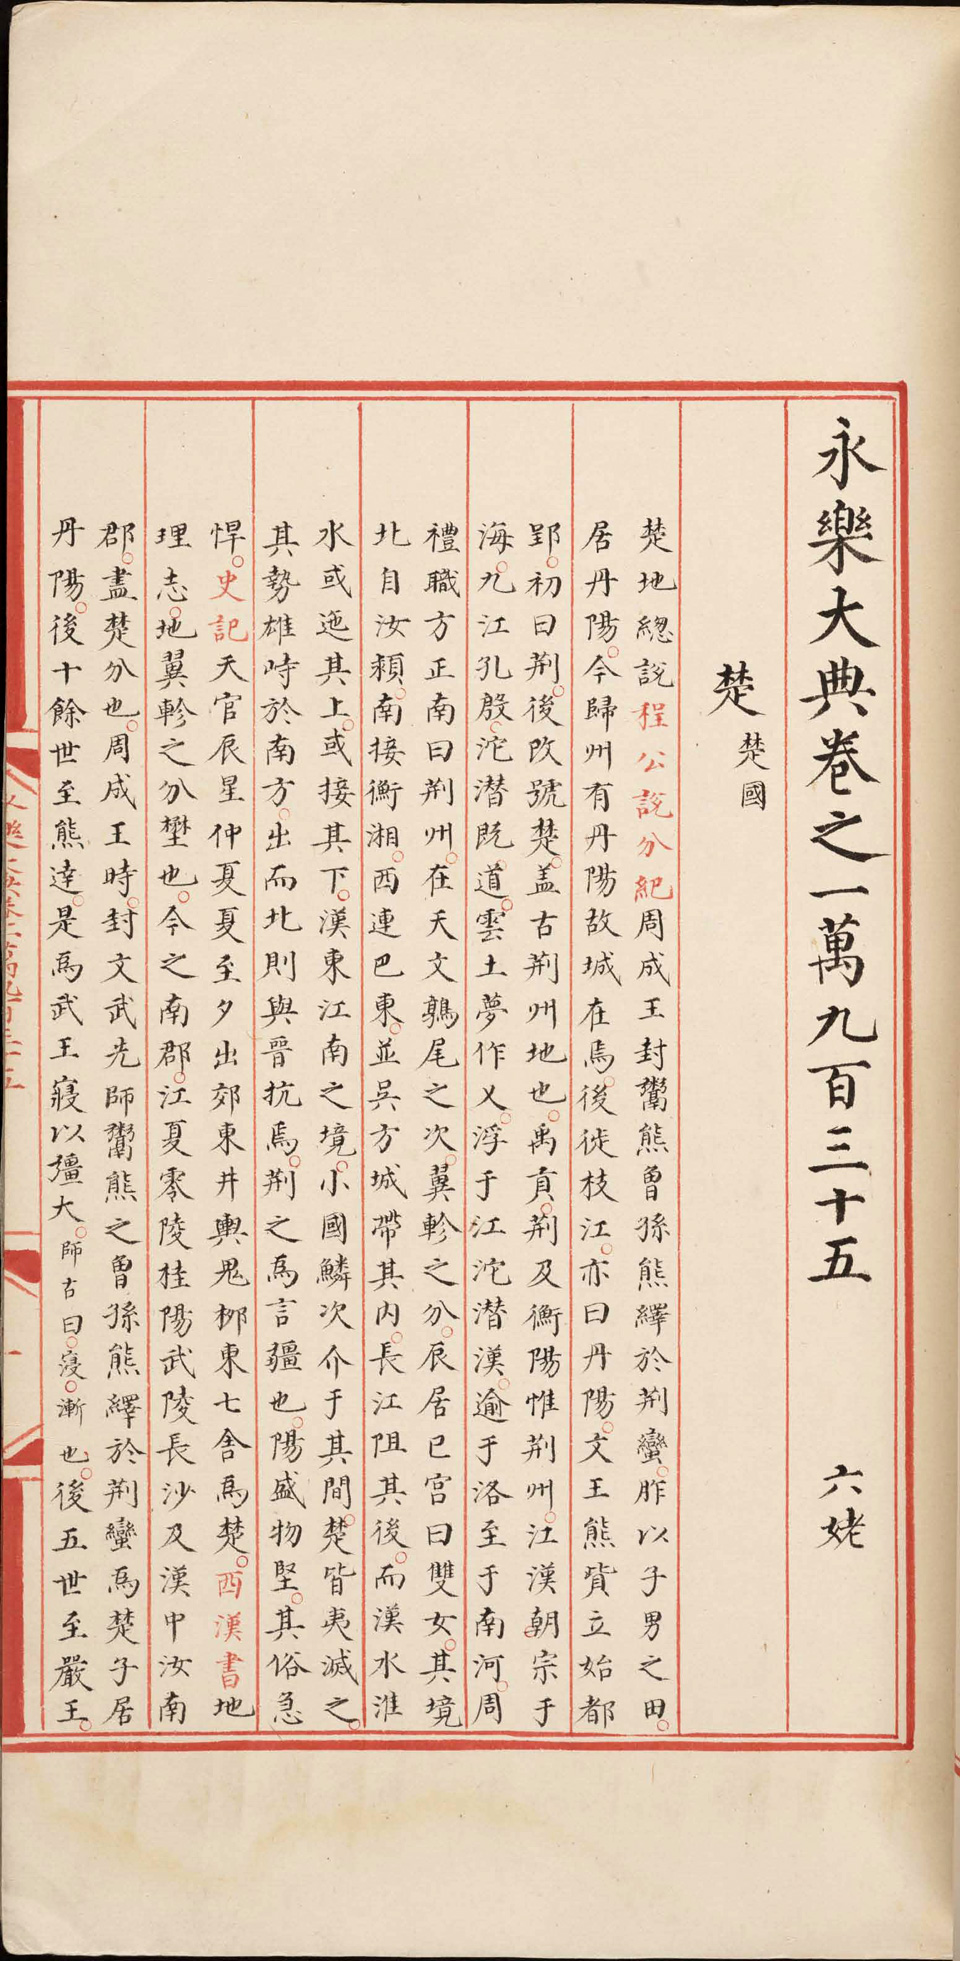 永樂大典卷之一萬九百三十五 六姥
楚 楚國
楚地總說程公說分紀周成王封鬻熊曾孫熊繹於荆蠻胙以子男之田
居丹陽今歸州有丹陽故城在焉後徙枝江亦曰丹陽文王熊貲立始都
郢初曰荆後改號楚盖古荆州地也禹貢荆及衡陽惟荆州江漢朝宗于
海九江孔殷沱潜既道雲土夢作乂浮于江沱潜漢逾于洛至于南河周
禮職方正南曰荆州在天文鶉尾之次翼軫之分辰居巳宫曰雙女其境
北自汝頛南接衡湘西連巴東並吳方城帶其内長江阻其後而漢水淮
水或迤其上或接其下漢東江南之境小國鱗次介于其間楚皆夷滅之
其勢雄峙於南方出而北則與晉抗焉荆之為言疆也陽盛物堅其俗急
悍史記天官辰星仲夏夏至夕出郊東井輿鬼栁東七舍爲楚西漢書地
理志地翼軫之分壄也今之南郡江夏零陵桂陽武陵長沙及漢中汝南
郡盡楚分也周成王時封文武先師鬻熊之曾孫熊繹於荆蠻爲楚子居
丹陽後十餘世至熊達是爲武王寖以彊大師古曰寖漸也後五世至嚴王